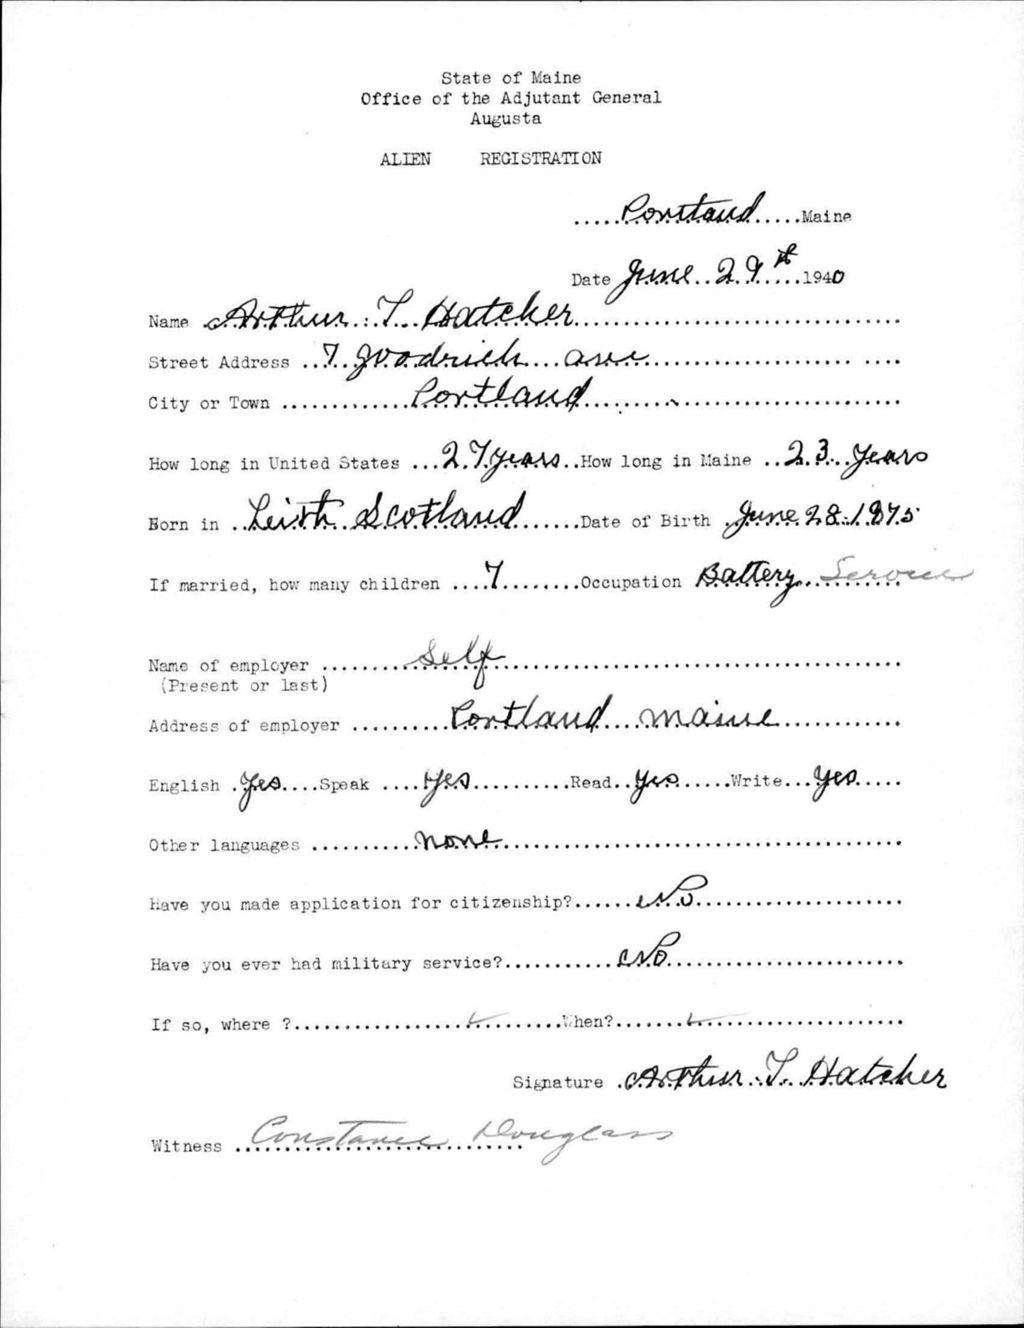 State of Maine
Office of the Adjutant General
Augusta
ALIEN REGISTRATION
.....Portland.....Maine
Date June 29th 1940
Name Arthur T. Hatcher
Street Address 7 Goodrich Ave
City or Town Portland
How long in United States 27 years How long in Maine 23 Years
Born in Leith Scotland Date of Birth June 28 1875
If married, how many children 7 Occupation Battery Service
Name of employer Self
(Present or last)
Address of employer Portland Maine
English Yes Speak Yes Read Yes Write Yes
Other languages none
Have you made application for citizenship? No
Have you ever had military service? No
If so, where ? When?
Signature Arthur T. Hatcher
Witness Constance Douglass